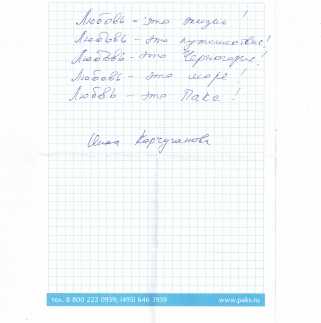 Любовь – это жизнь!
Любовь – это путешествие!
Любовь – это Черногория!
Любовь – это море!
Любовь – это Пакс!
Анна Корчуганова
тел. 8 800 222 0939; (495) 646 0939 www.paks.ru